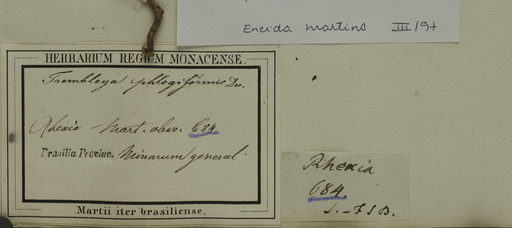 Eneida Martins III/97
HERBARIUM REGIUM MONACENSE.
Trembleya phlogiformis Dc.
Rhexia Mart. obss. 684
Brasilia Provinc. Minarum general.
Martii iter brasiliense.
Rhexia
684.